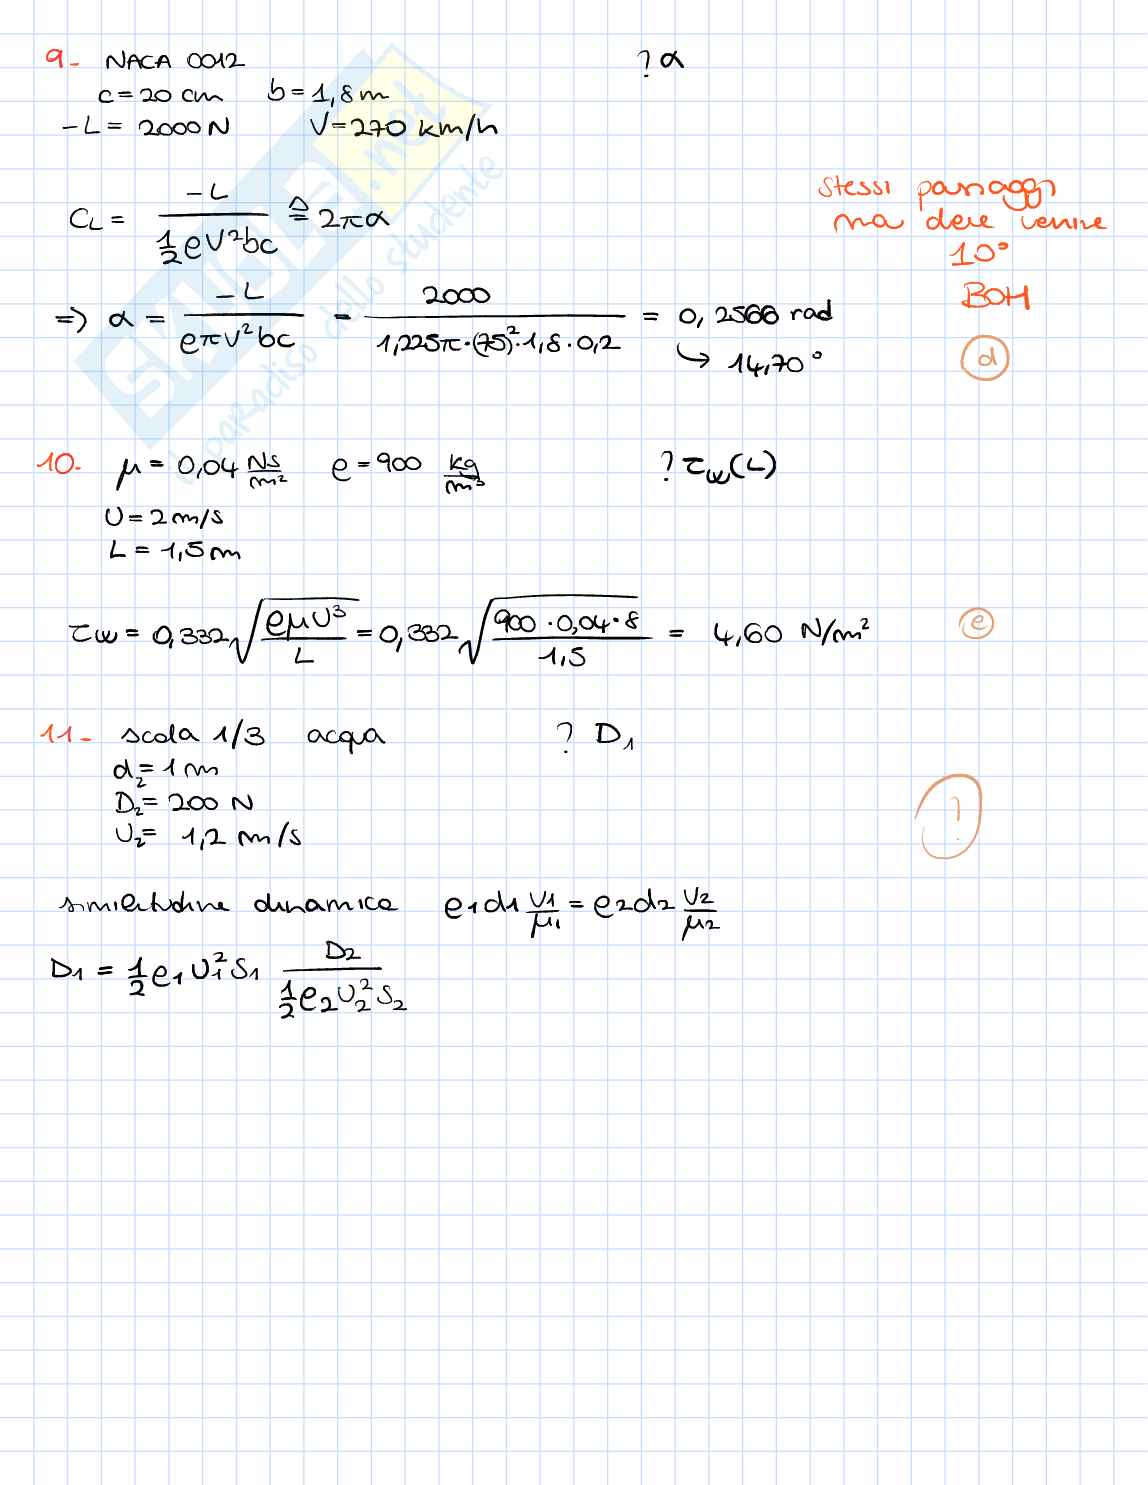 9- NACA 0012 ? α
c = 20 cm b = 1,8 m
-L = 2000 N V = 270 km/h
C_L = -L / (½ ρ V² b c) ≙ 2πα
stessi passaggi
ma deve venire
10°
BOH
⇒ α = -L / (ρ π V² b c) = 2000 / (1,225π·(75)²·1,8·0,2) = 0,2566 rad
↳ 14,70°
d
10- μ = 0,04 Ns/m² ρ = 900 kg/m³ ? τw(L)
U = 2 m/s
L = 1,5 m
τw = 0,332 √(ρμU³ / L) = 0,332 √(900·0,04·8 / 1,5) = 4,60 N/m² e
11- scala 1/3 acqua ? D₁
d₂ = 1 m
D₂ = 200 N
U₂ = 1,2 m/s
?
similitudine dinamica ρ₁d₁ U₁/μ₁ = ρ₂d₂ U₂/μ₂
D₁ = ½ ρ₁ U₁² S₁ D₂ / (½ ρ₂ U₂² S₂)
SKUOLA.net
il paradiso dello studente